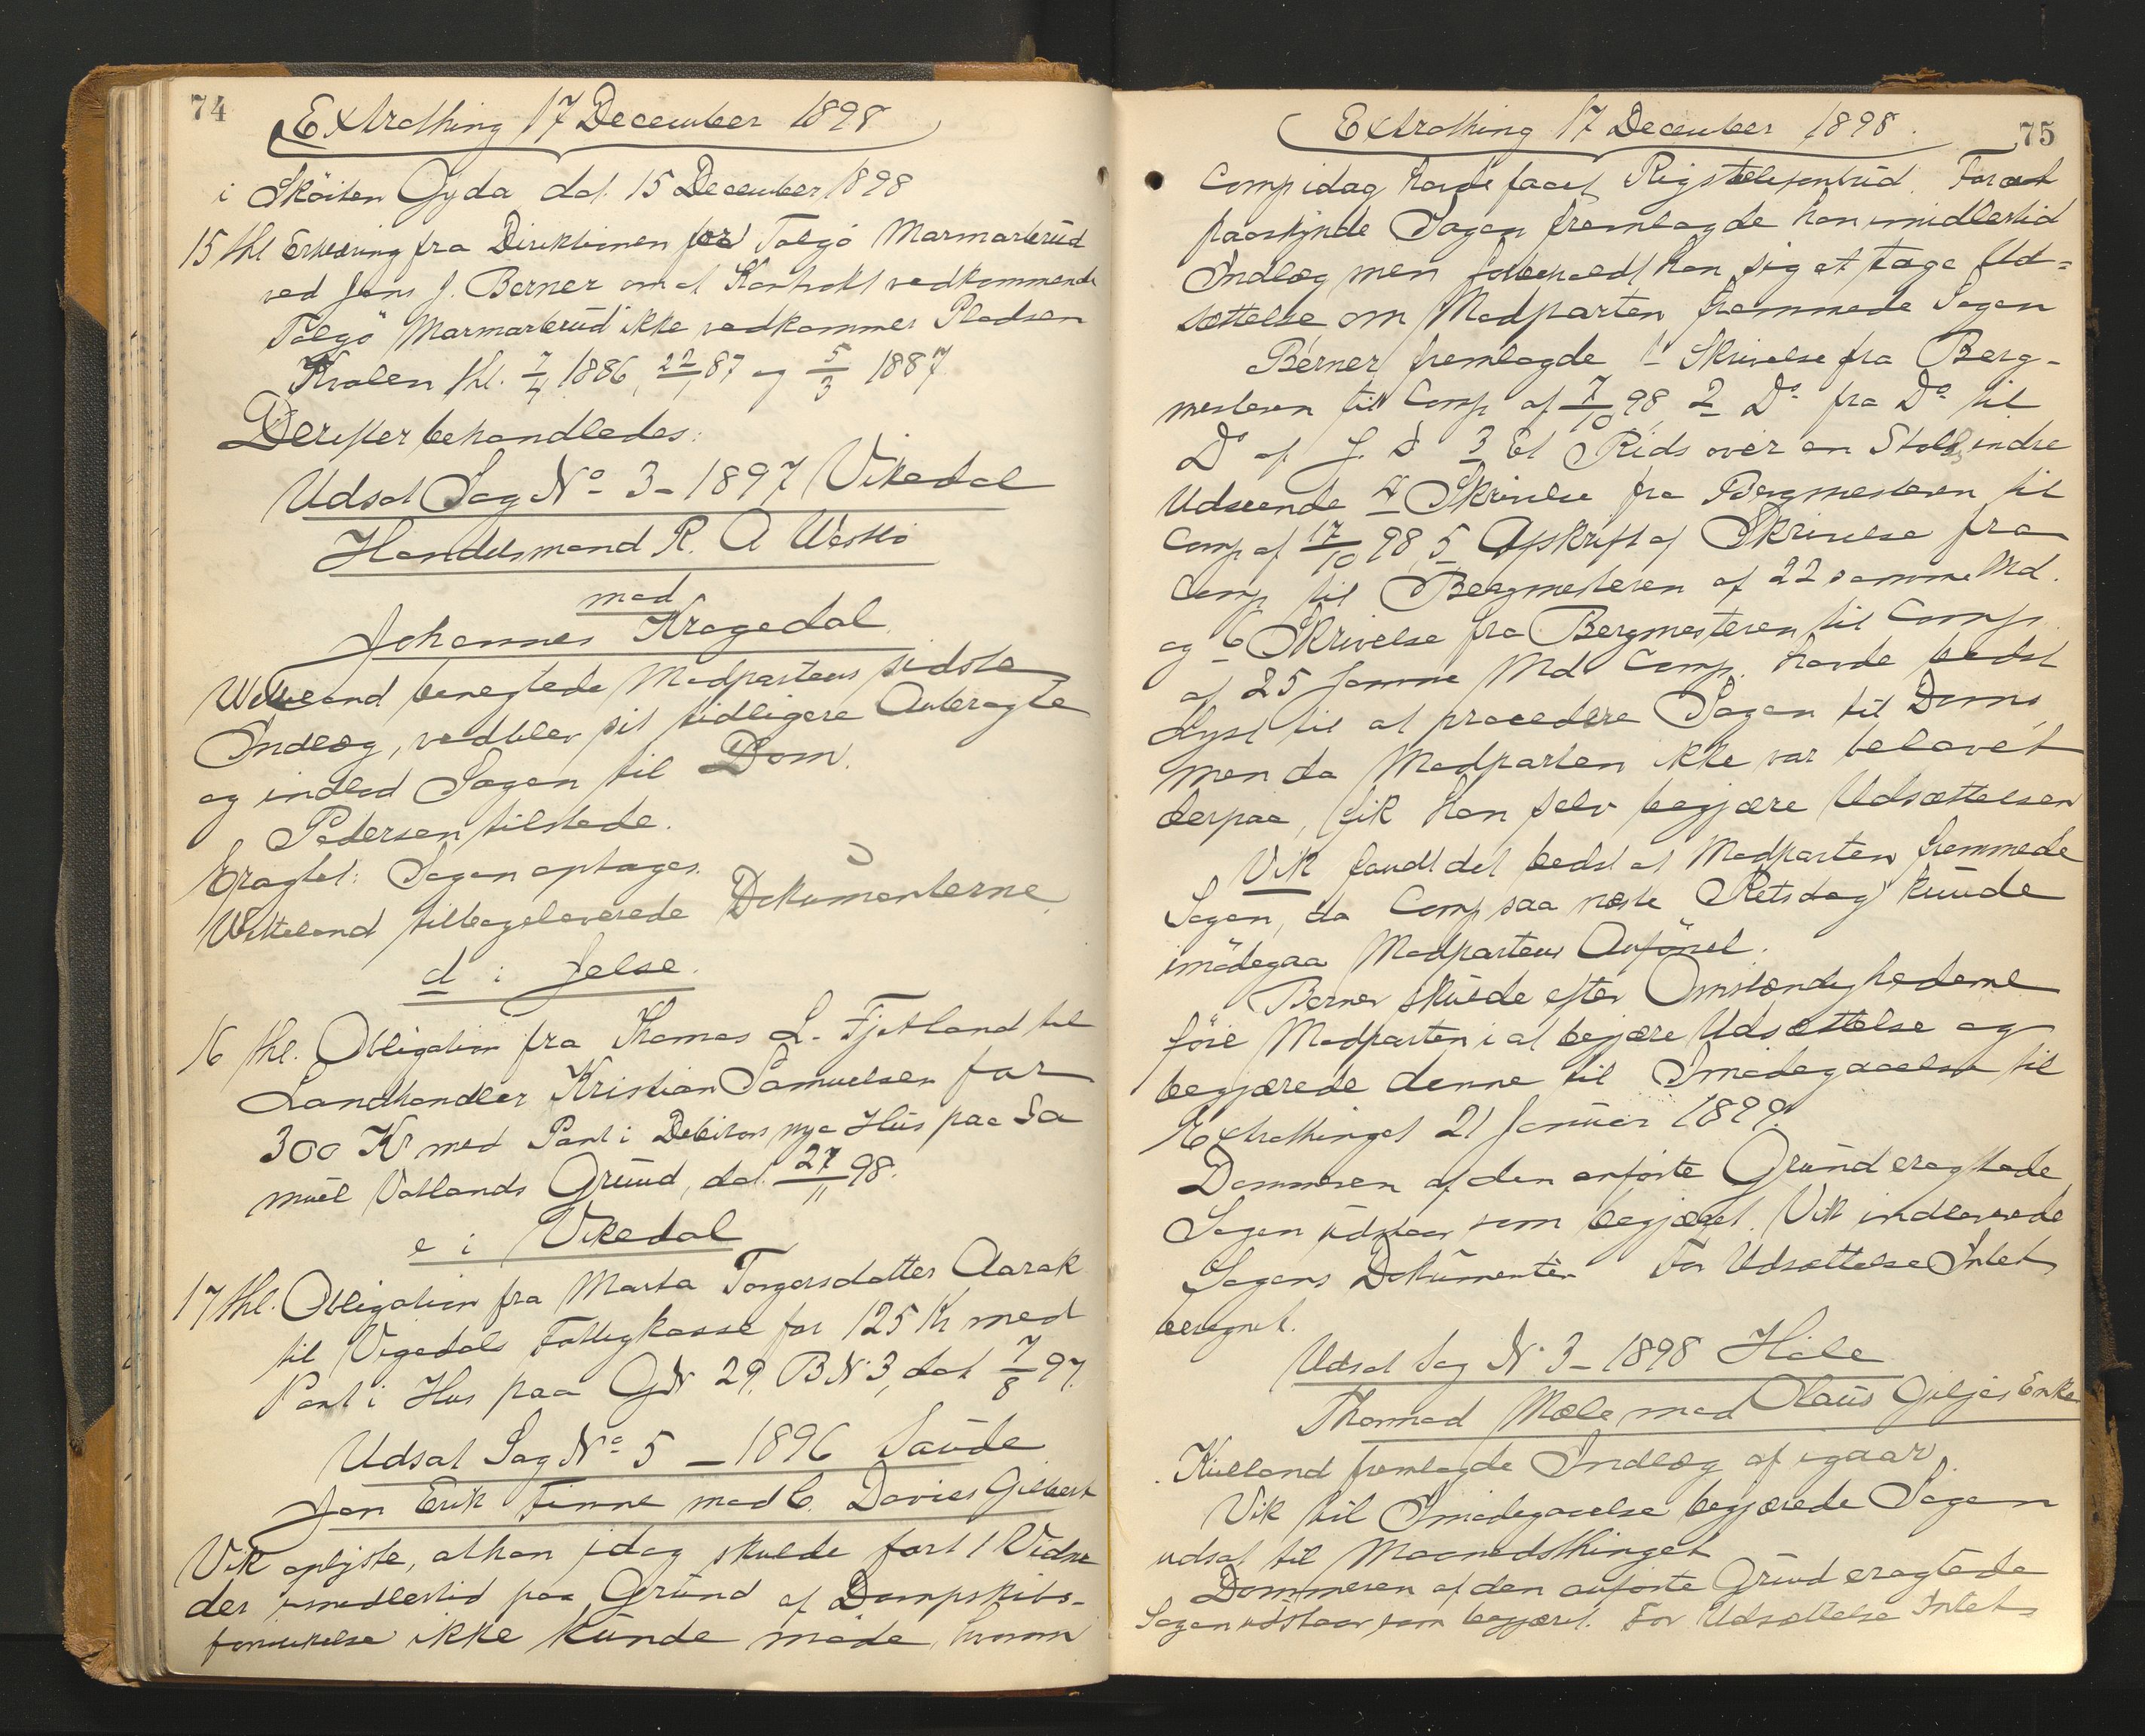 74
Extrathing 17 December 1898
i Skøiten Gyda, dat. 15 December 1898
15 thl Erklæring fra Direktionen for Talgö Marmorbrud
ved Jens J. Berner om at Kontrakt vedkommende
Talgö Marmorbrud ikke vedkommer Pladsen
Kvalen thl. 7/4 1886, 22/1 87 og 5/3 1887
Derefter behandledes:
Udsat Sag No 3 - 1897 Vikedal
Handelsmand R. A Westbö
mod
Johannes Kragedal
Witteland benegtede Modpartens sidste
Indlæg, vedblev sit tidligere Anbragte
og indlod Sagen til Dom.
Pedersen tilstede.
Eragtet: Sagen optages.
Witteland tilbageleverede Dokumenterne.
d i Jelse.
16 thl. Obligation fra Thomas L. Fjetland til
Landhandler Kristian Samuelsen for
300 Kr med Pant i Debitors nye Hus paa Sa
muel Vatlands Grund, dat. 27/11 98.
e i Vikedal
17 thl. Obligation fra Marta Torgersdatter Aarak
til Vigedals Fattigkasse for 125 Kr med
Pant i Hus paa GN 29. BN 3, dat 7/8 97.
Udsat Sag No 5 - 1896 Saude
Jon Erik Finne mod C. Davies Gilbert
Vik oplyste, at han idag skulde ført 1 Vidne
der imidlertid paa Grund af Dampskibs-
forsinkelse ikke kunde møde, hvorom
Extrathing 17 December 1898.
75
Comp idag havde faaet Rigstelefonbud. For at
paaskynde Sagen fremlagde han imidlertid
Indlæg, men forbeholdt han sig at tage Ud=
sættelse om Modparten fremmede Sagen
Berner fremlagde 1 Skrivelse fra Berg-
mesteren til Comp af 7/10 98, 2 Do fra Do til
Do af J. D 3 Et Rids over en Stolls indre
Udseende 4 Skrivelse fra Bergmesteren til
Comp af 17/10 98, 5 Afskrift af Skrivelse fra
Comp til Bergmesteren af 22 samme Md.
og 6 Skrivelse fra Bergmesteren til Comp
af 25 samme Md Comp. havde bedst
Lyst til at procedere Sagen til Doms,
men da Modparten ikke var belavet
derpaa, fik han selv begjære Udsættelsen
Vik fandt det bedst at Modparten fremmede
Sagen, da Comp saa næste Retsdag kunde
imødegaa Modpartens Anførsel.
Berner skulde efter Omstændighederne
föie Modparten i at begjære Udsættelse og
begjærede denne til Imødegaaelse til
Extrathinget 21 Januar 1899.
Dommeren af den anførte Grund eragtede
Sagen udstaar som begjæret. Vik indleverede
Sagens Dokumenter For Udsættelse Intet
beregnet.
Udsat Sag N. 3 - 1898 Hole
Thormod Mæle mod Olaus Giljes Enke
Kielland fremlagde Indlæg af igaar.
Vik til Imødegaaelse begjærede Sagen
udsat til Maanedsthinget
Dommeren af den anførte Grund eragtede
Sagen udstaar som begjæret. For Udsættelse Intet